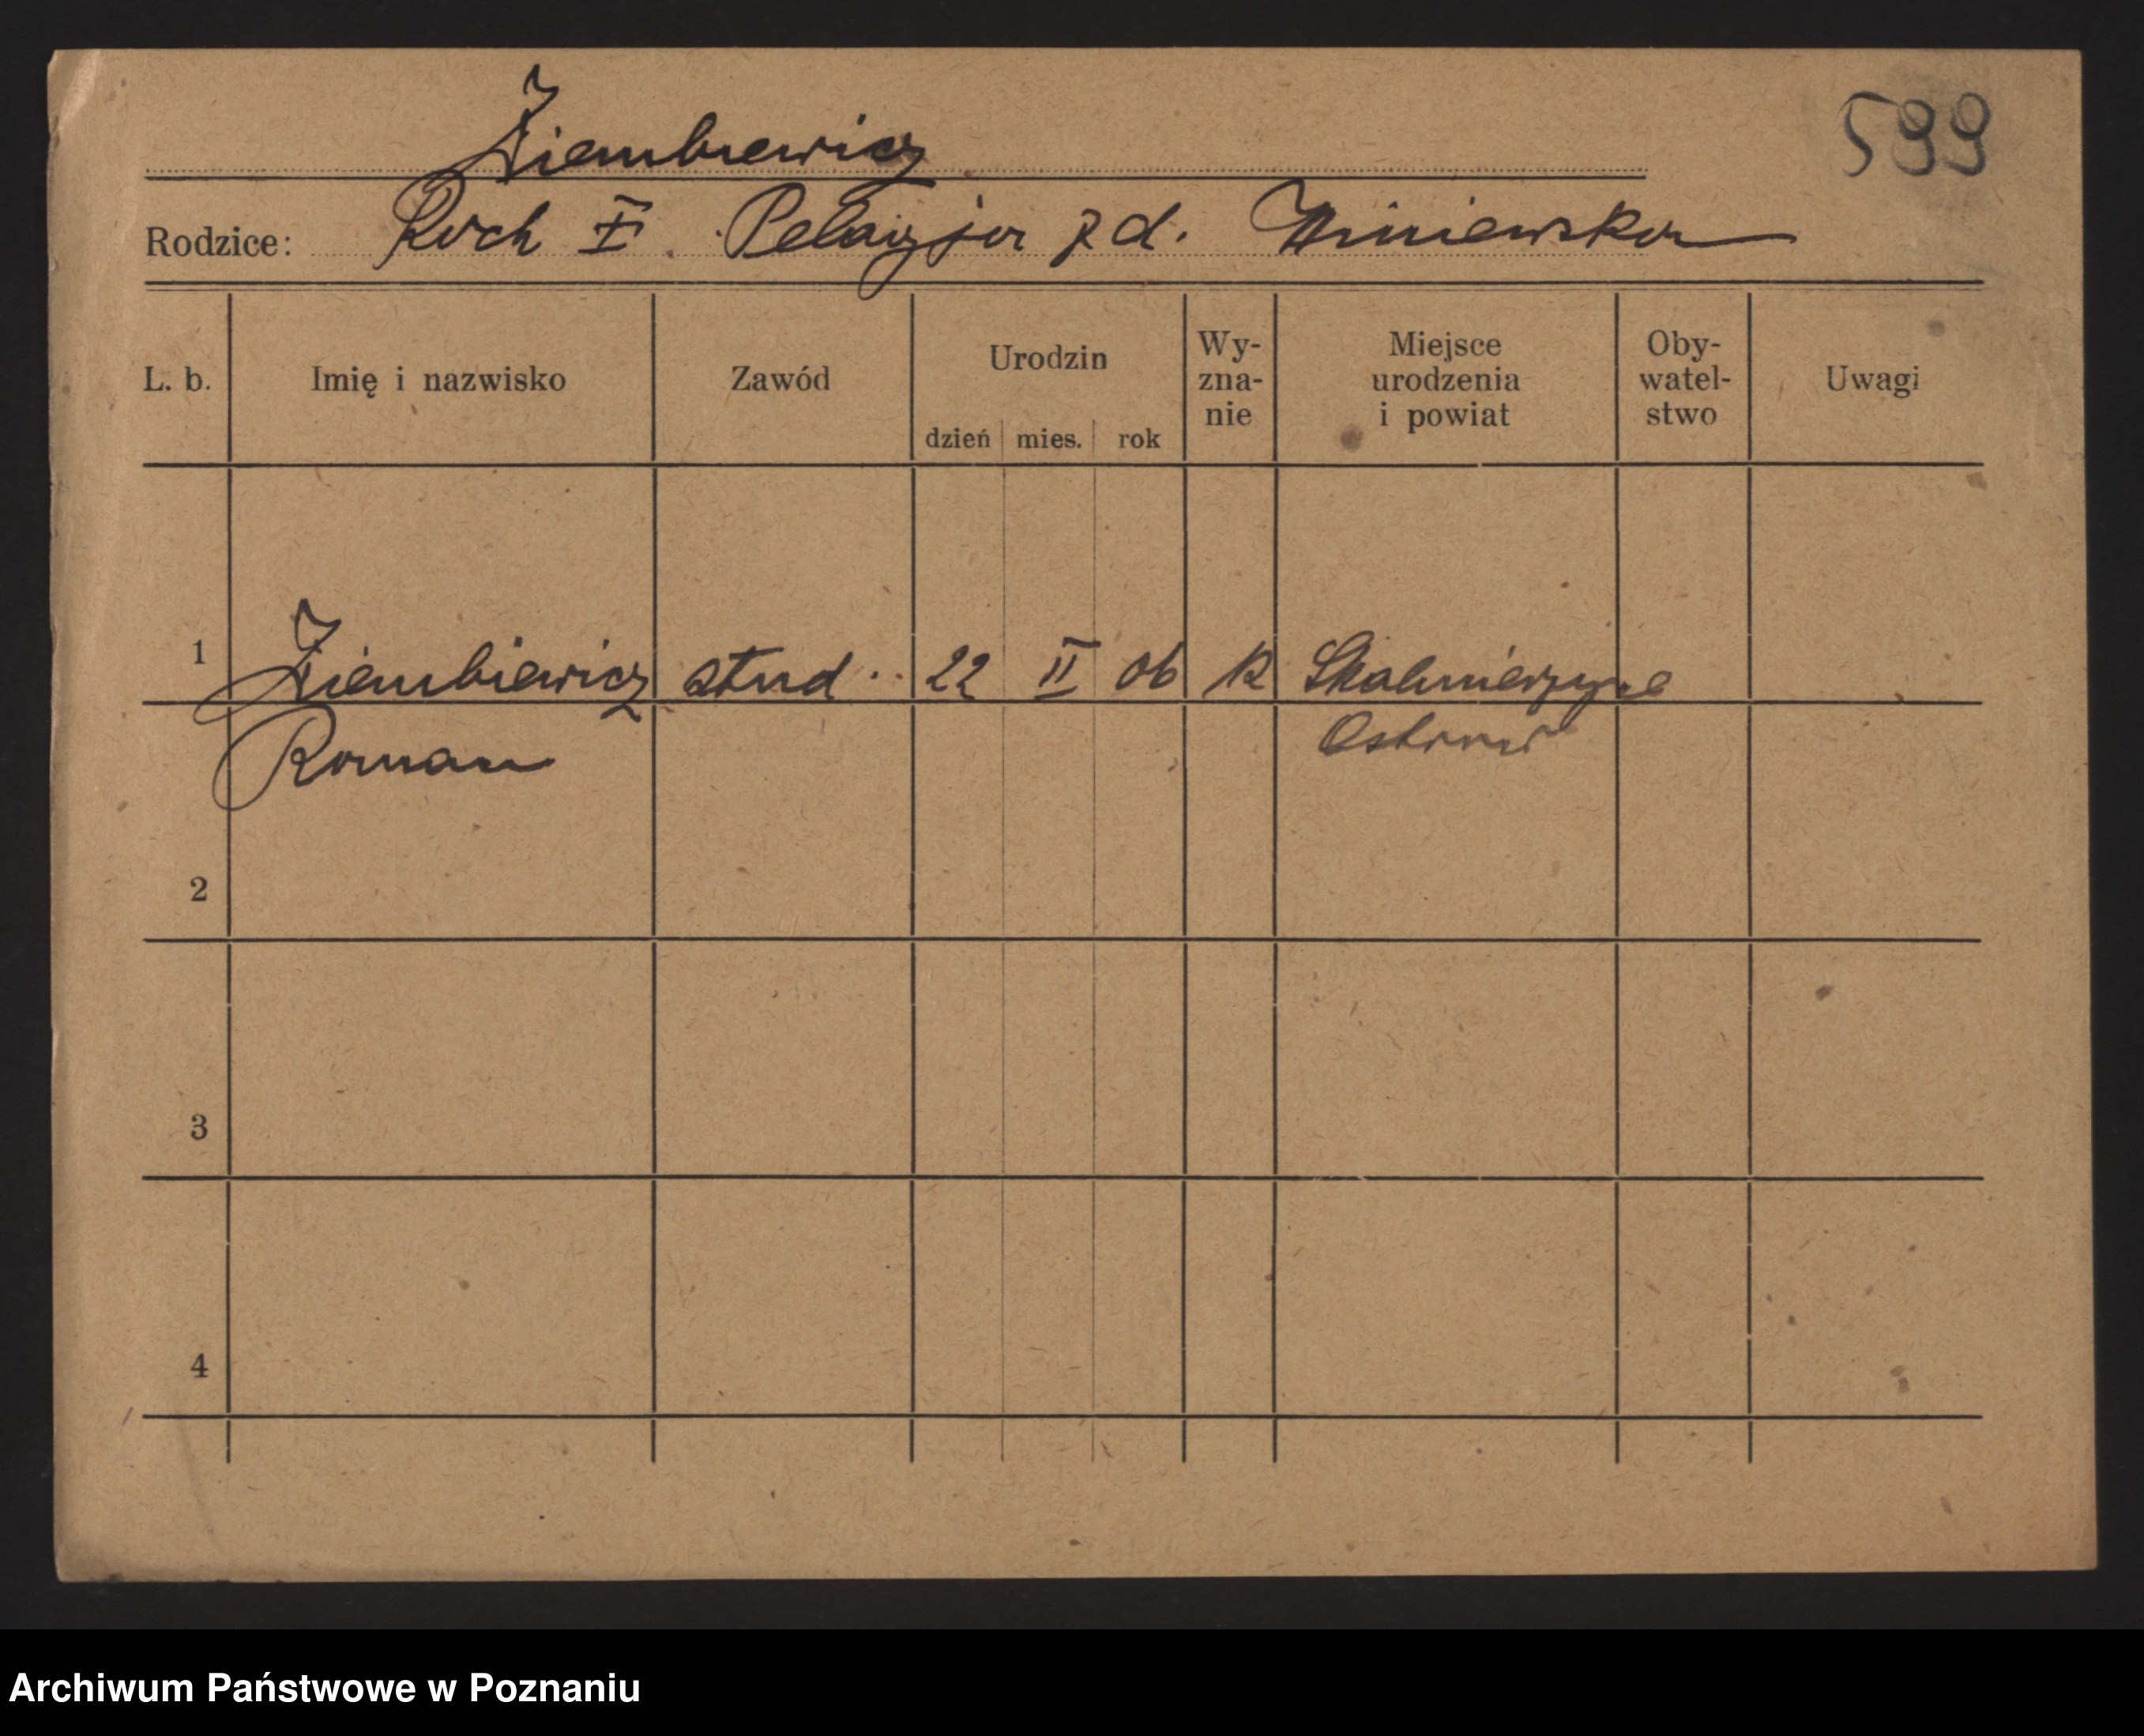 599
Ziembiewicz
Rodzice: Roch I. Pelagja z d. Winiewska
L. b. Imię i nazwisko Zawód Urodzin dzień mies. rok Wy-zna-nie Miejsce urodzenia i powiat Oby-watel-stwo Uwagi
1 Ziembiewicz stud. 22 II 06 R Skalmierzyce
Roman Ostrow
2
3
4
Archiwum Państwowe w Poznaniu